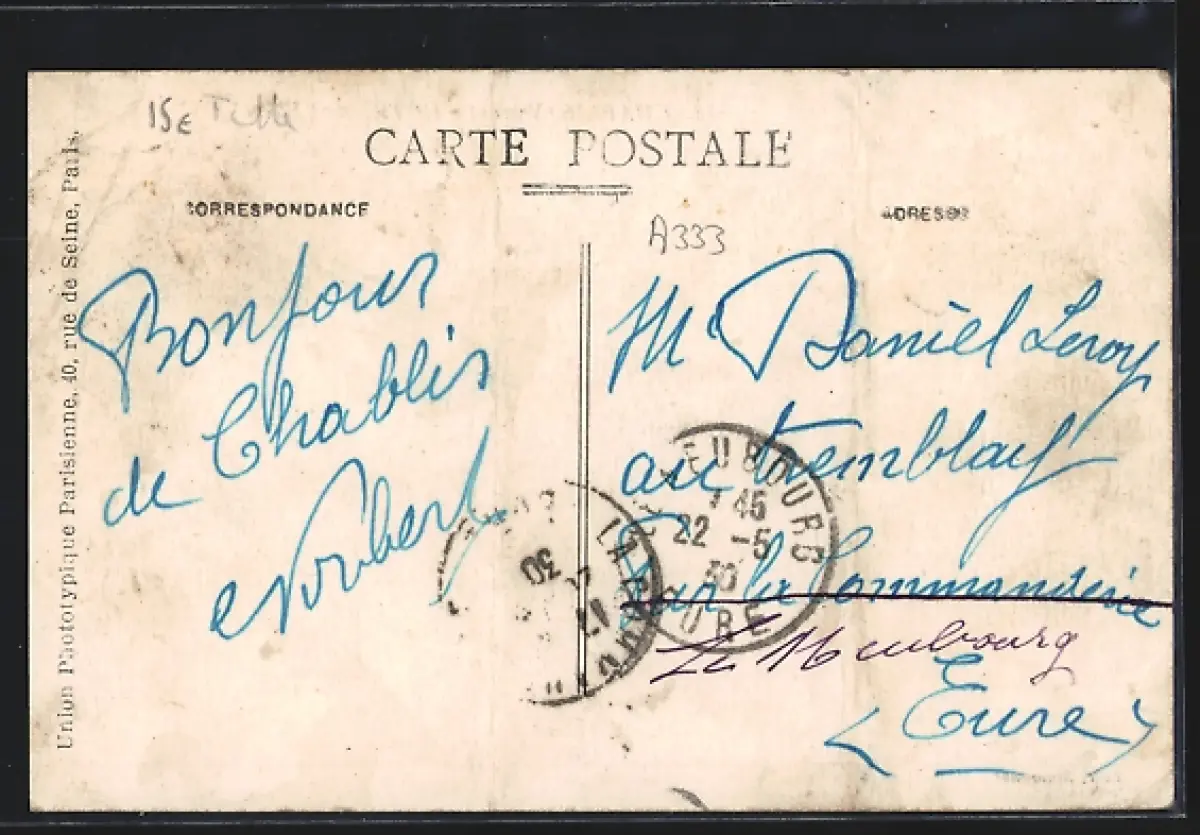 15€
CARTE POSTALE
CORRESPONDANCE
ADRESSE
A333
Union Phototypique Parisienne, 40, rue de Seine, Paris.
Bonjour
de Chablis
Norbert
Mr Daniel Leroy
au tremblay
Par la Commanderie
Le Neubourg
(Eure)
LE NEUBOURG
7 45
22 -5
30
EURE
30